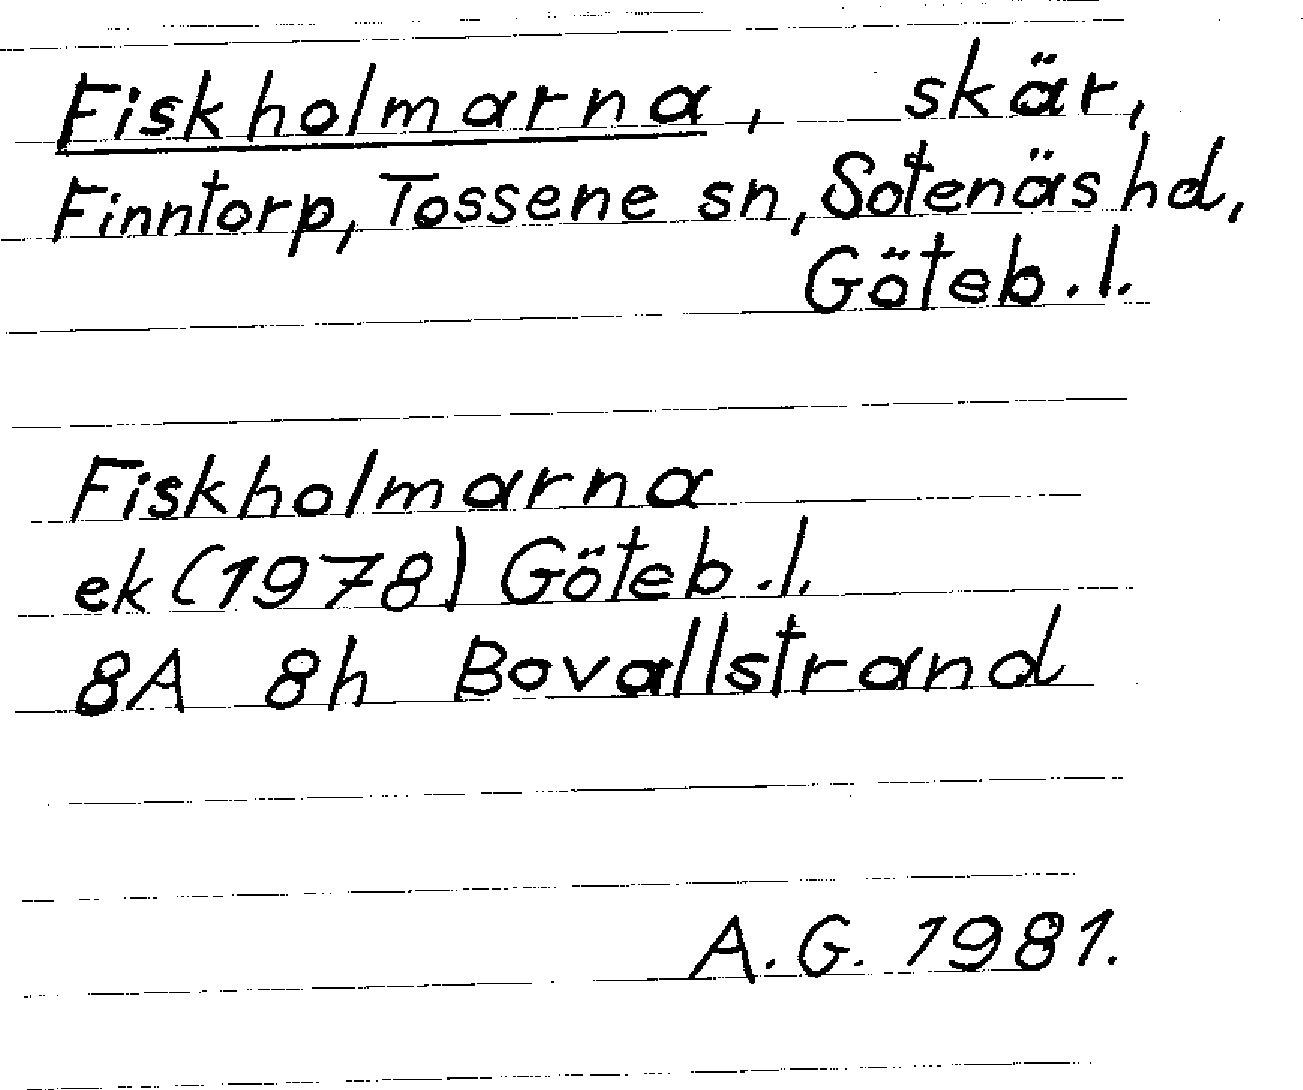 Fiskholmarna, skär,
Finntorp, Tossene sn, Sotenäs hd,
Göteb. l.
Fiskholmarna
ek (1978) Göteb. l.
8A 8h Bovallstrand
A. G. 1981.